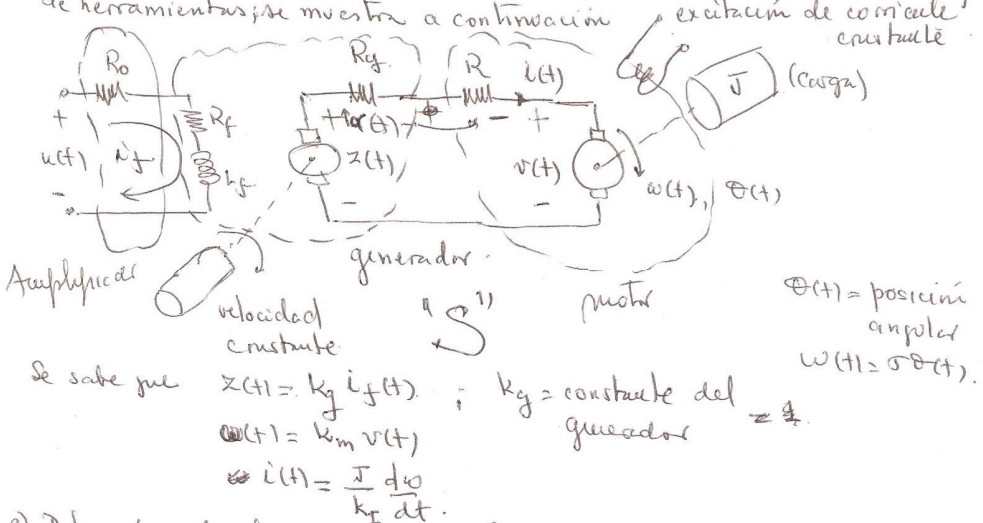 de herramientas; se muestra a continuación
excitación de corriente constante
R₀
Rg
R
i(t)
J
(carga)
+
Rf
+
-
+
u(t)
if
Lf
z(t)
v(t)
ω(t), θ(t)
-
-
-
Amplificador
generador
motor
velocidad constante
"S"
θ(t) = posición angular
ω(t) = σθ(t).
Se sabe que z(t) = kg if(t). ; kg = constante del generador
ω(t) = km v(t)
i(t) = J/kT dω/dt.